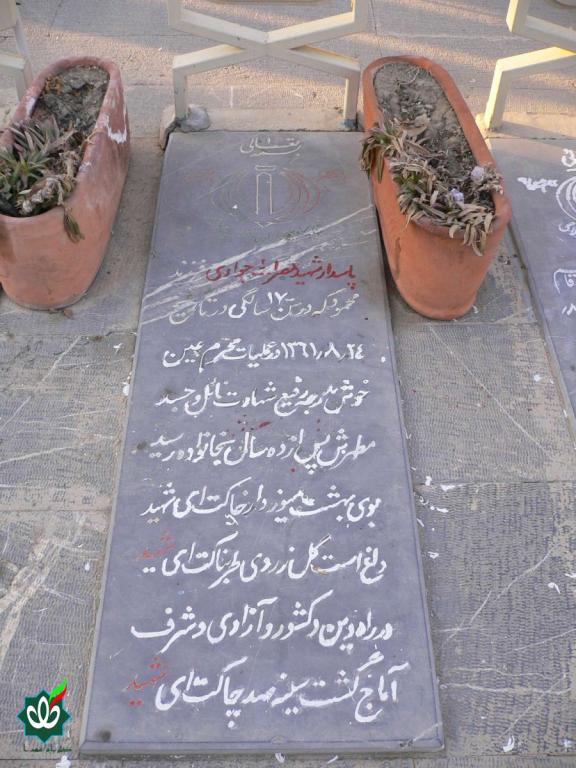 بسمه تعالی
پاسدار شهید جوادی فرزند
محمود که در سن ۱۷ سالگی در تاریخ
۱۳۶۱٫۸٫۲۴ در عملیات محرم عین
خوش بدرجه رفیع شهادت نائل و جسد
مطهرش پس از ده سال بخانواده رسید
بوی بهشت میوزد از خاکت ای شهید
داغ است گل ز روی طربناکت ای شهید
در راه دین و کشور و آزادی و شرف
آماج گشت سینه صد چاکت ای شهید